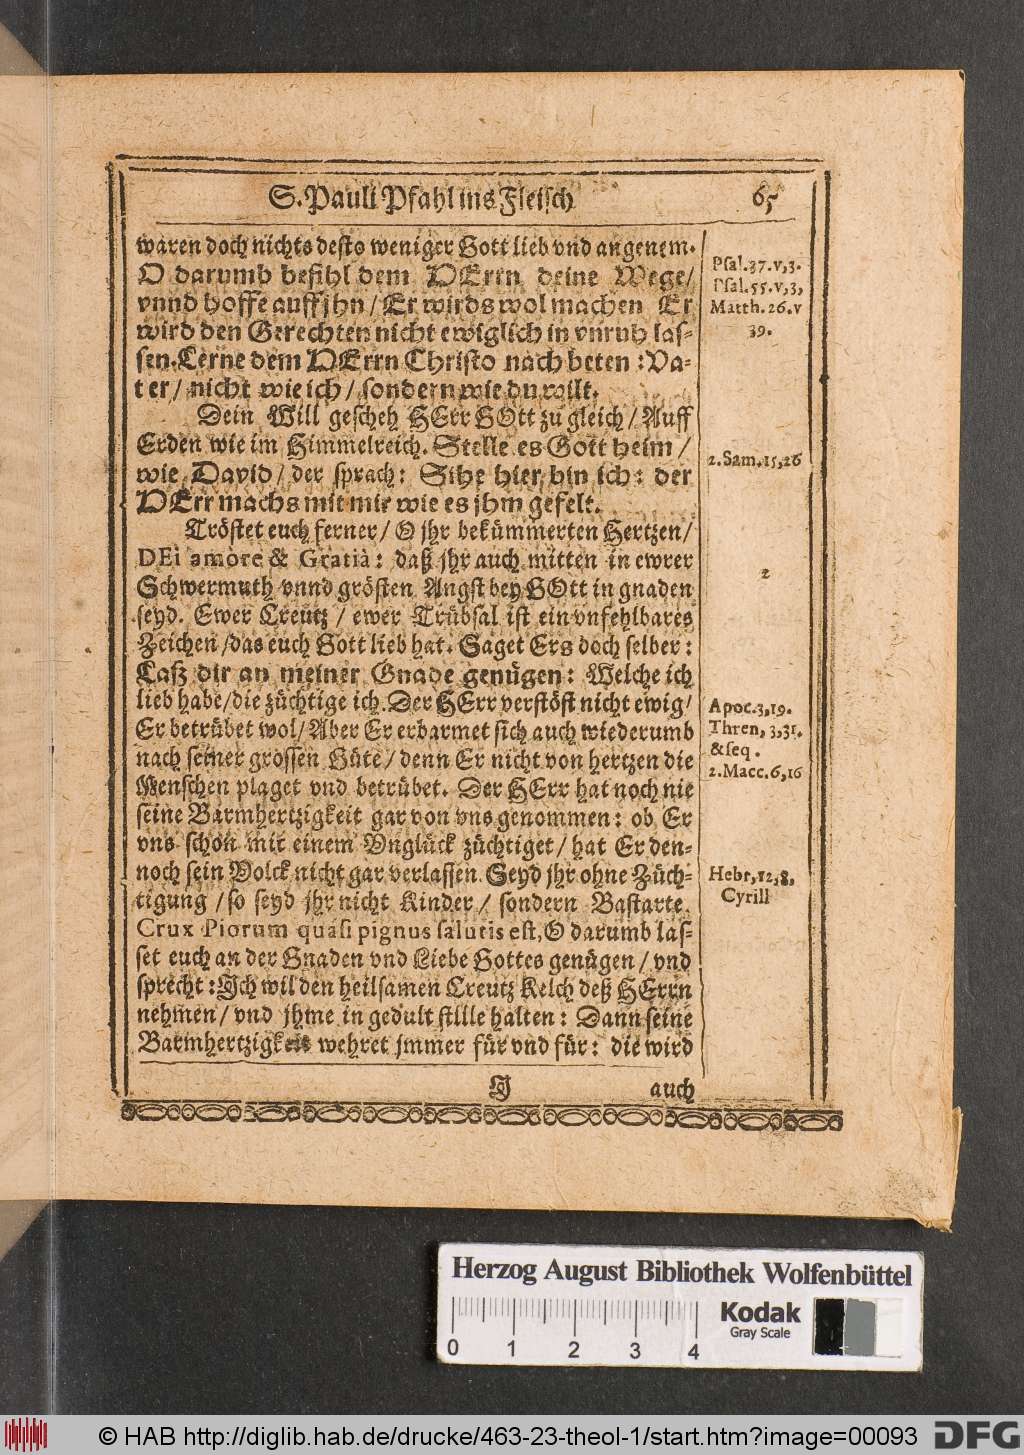 S. Pauli Pfahl ins Fleisch 65
waren doch nichts desto weniger Gott lieb vnd angenem.
O darumb befihl dem HErrn deine Wege/
vnnd hoffe auff jhn / Er wirds wol machen Er
wird den Gerechten nicht ewiglich in vnruh las-
sen. Lerne dem HErrn Christo nach beten : Va-
ter / nicht wie ich / sondern wie du wilt.
Dein Will gescheh HErr GOtt zu gleich / Auff
Erden wie im Himmelreich. Stelle es Gott heim /
wie David / der sprach : Sihe hier bin ich : der
HErr machs mit mir wie es jhm gefelt.
Tröstet euch ferner / O jhr bekümmerten Hertzen /
DEi amòre & Gratià : daß jhr auch mitten in ewrer
Schwermuth vnnd grösten Angst bey GOtt in gnaden
seyd. Ewer Creutz / ewer Trübsal ist ein vnfehlbares
Zeichen / das euch Gott lieb hat. Saget Ers doch selber :
Laß dir an meiner Gnade genügen : Welche ich
lieb habe / die züchtige ich. Der HErr verstöst nicht ewig /
Er betrübet wol / Aber Er erbarmet sich auch wiederumb
nach seiner grossen Güte / denn Er nicht von hertzen die
Menschen plaget vnd betrübet. Der HErr hat noch nie
seine Barmhertzigkeit gar von vns genommen : ob Er
vns schon mit einem Vnglück züchtiget / hat Er den-
noch sein Volck nicht gar verlassen. Seyd jhr ohne Züch-
tigung / so seyd jhr nicht Kinder / sondern Bastarte.
Crux Piorum quasi pignus salutis est, O darumb las-
set euch an der Gnaden vnd Liebe Gottes genügen / vnd
sprecht : Ich wil den heilsamen Creutz Kelch deß HErrn
nehmen / vnd jhme in gedult stille halten : Dann seine
Barmhertzigkeit wehret jmmer für vnd für : die wird
J auch
Psal.37.v,3.
Psal.55.v,3,
Matth.26.v
39.
2.Sam.15,26
2
Apoc.3,19.
Thren, 3,31.
&seq.
2.Macc.6,16
Hebr,12,8,
Cyrill
Herzog August Bibliothek Wolfenbüttel
0 1 2 3 4
Kodak
Gray Scale
© HAB http://diglib.hab.de/drucke/463-23-theol-1/start.htm?image=00093
DFG